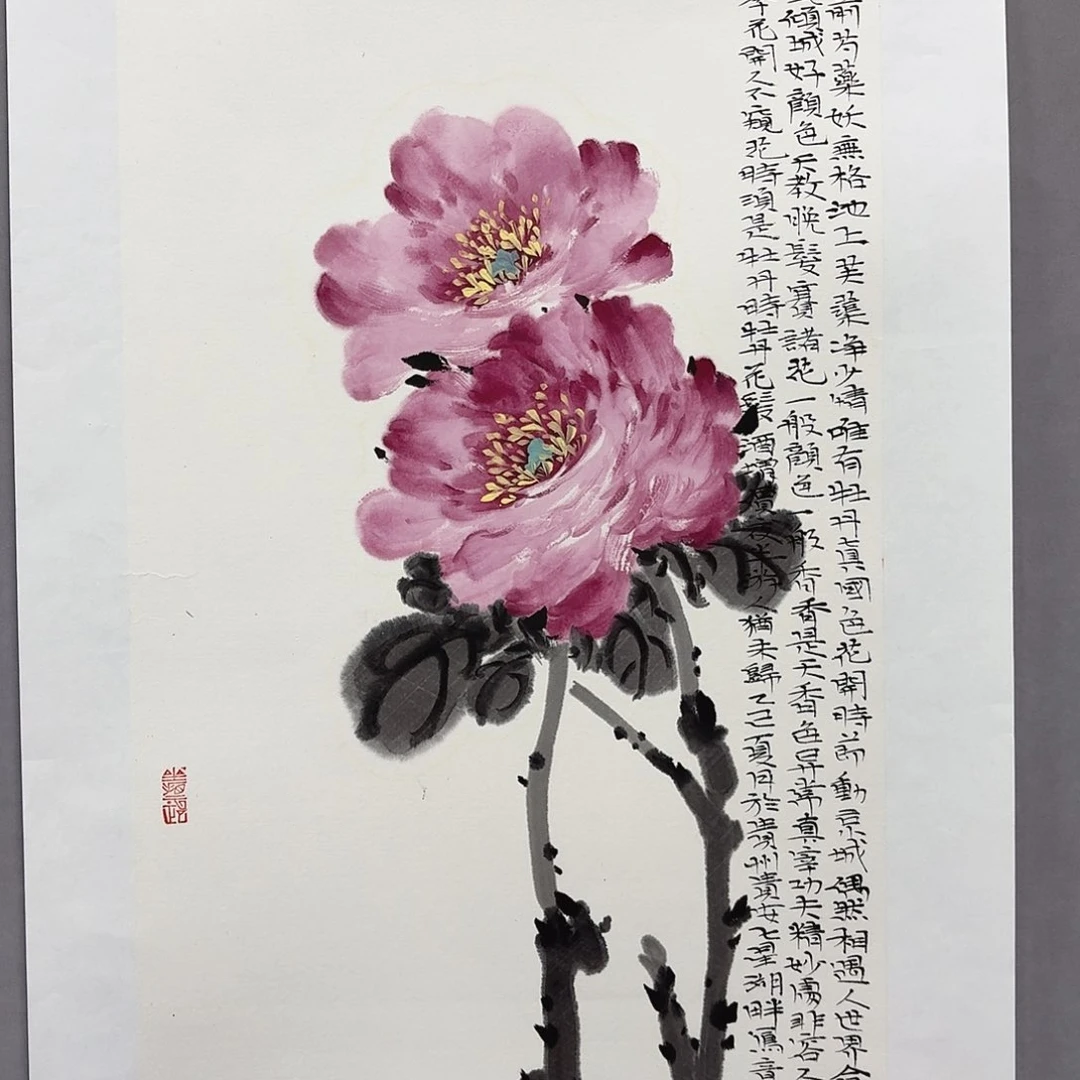 前芍藥妖無格池上芙蕖淨少情唯有牡丹真國色花開時節動京城偶然相遇人世界合
傾城好顏色天教晚發賽諸花一般顏色一般香香是天香色異常真宰功夫精妙處非容人
年花開人不窺花時須是牡丹時牡丹花發酒增價夜半游人猶未歸乙巳夏月於貴州貴安七星湖畔馮音